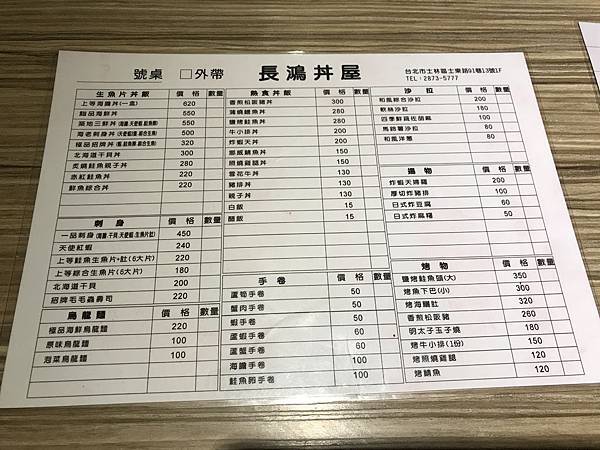 號桌 □外帶 長鴻丼屋
台北市士林區士東路91巷13號1F
TEL:2873-5777
生魚片丼飯 價格 數量
上等海膽丼(一盒) 620
極品海鮮丼 550
築地三鮮丼 550
海老刺身丼 500
極品招牌丼 320
北海道干貝丼 300
炙燒鮭魚親子丼 280
赤紅鮭魚丼 220
鮮魚綜合丼 220
刺身 價格 數量
一品刺身 450
天使紅蝦 240
上等鮭魚生魚片+肚(6大片) 220
上等綜合生魚片(6大片) 180
北海道干貝 200
招牌毛毛蟲壽司 220
烏龍麵 價格 數量
極品海鮮烏龍麵 220
原味烏龍麵 100
泡菜烏龍麵 100
熟食丼飯 價格 數量
香煎松阪豬丼 300
蒲燒鰻魚丼 280
鹽烤鮭魚丼 280
牛小排丼 200
炸蝦天丼 200
挪威鯖魚丼 150
照燒雞腿丼 150
雪花牛丼 130
豬排丼 130
親子丼 130
白飯 15
醋飯 15
手卷 價格 數量
蘆筍手卷 50
蟹肉手卷 50
蝦手卷 50
蘆蝦手卷 60
蘆蟹手卷 60
海膽手卷 100
鮭魚卵手卷 100
沙拉 價格 數量
和風綜合沙拉 200
軟絲沙拉 180
四季鮮蔬佐胡麻 100
馬鈴薯沙拉 80
和風洋蔥 80
揚物 價格 數量
炸蝦天婦羅 200
厚切炸豬排 100
日式炸豆腐 60
日式炸麻糬 50
烤物 價格 數量
鹽烤鮭魚頭(大) 350
烤魚下巴(小) 300
烤海鱺肚 320
香煎松阪豬 260
明太子玉子燒 180
烤牛小排(1份) 150
烤照燒雞腿 120
烤鯖魚 120